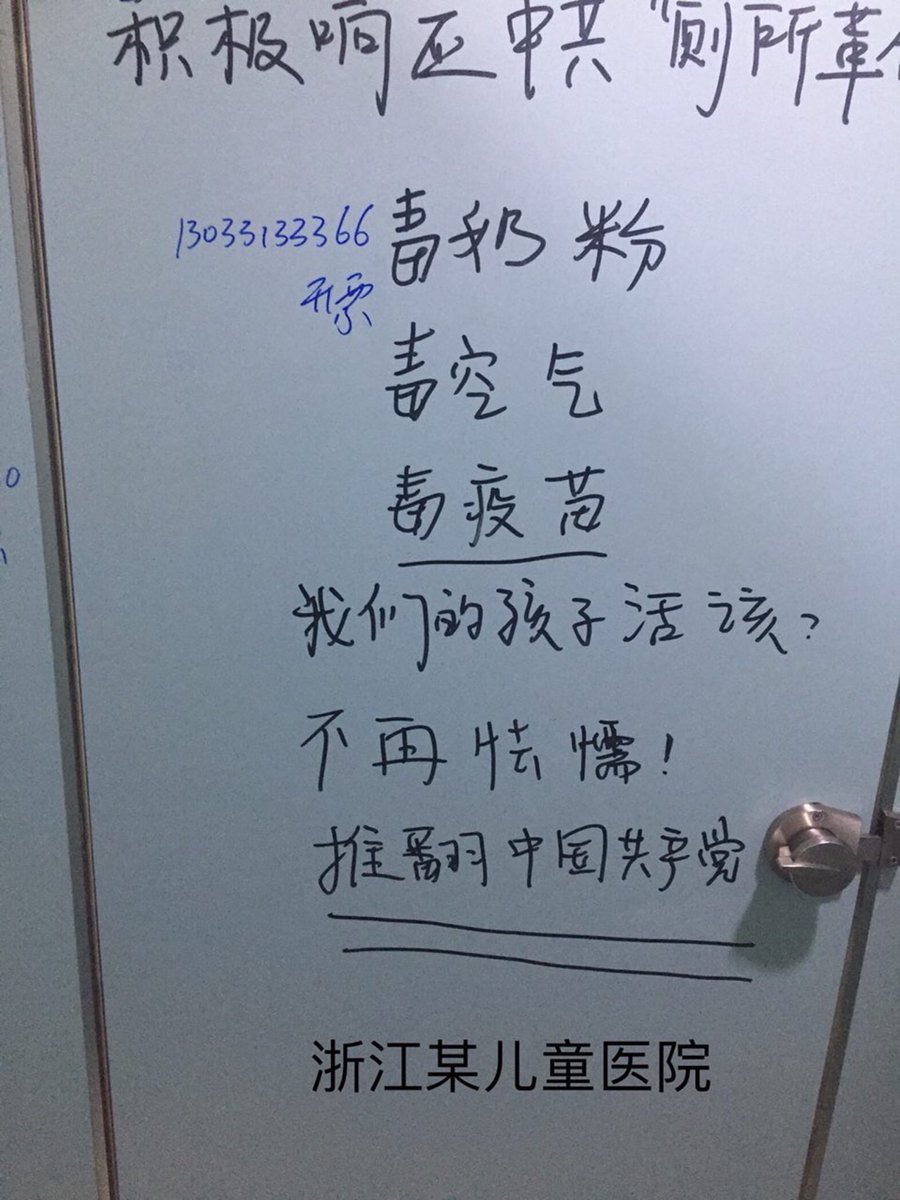 积极响应中共"厕所革
13033133366
开票
毒奶粉
毒空气
毒疫苗
我们的孩子活该?
不再怯懦!
推翻中国共产党
浙江某儿童医院